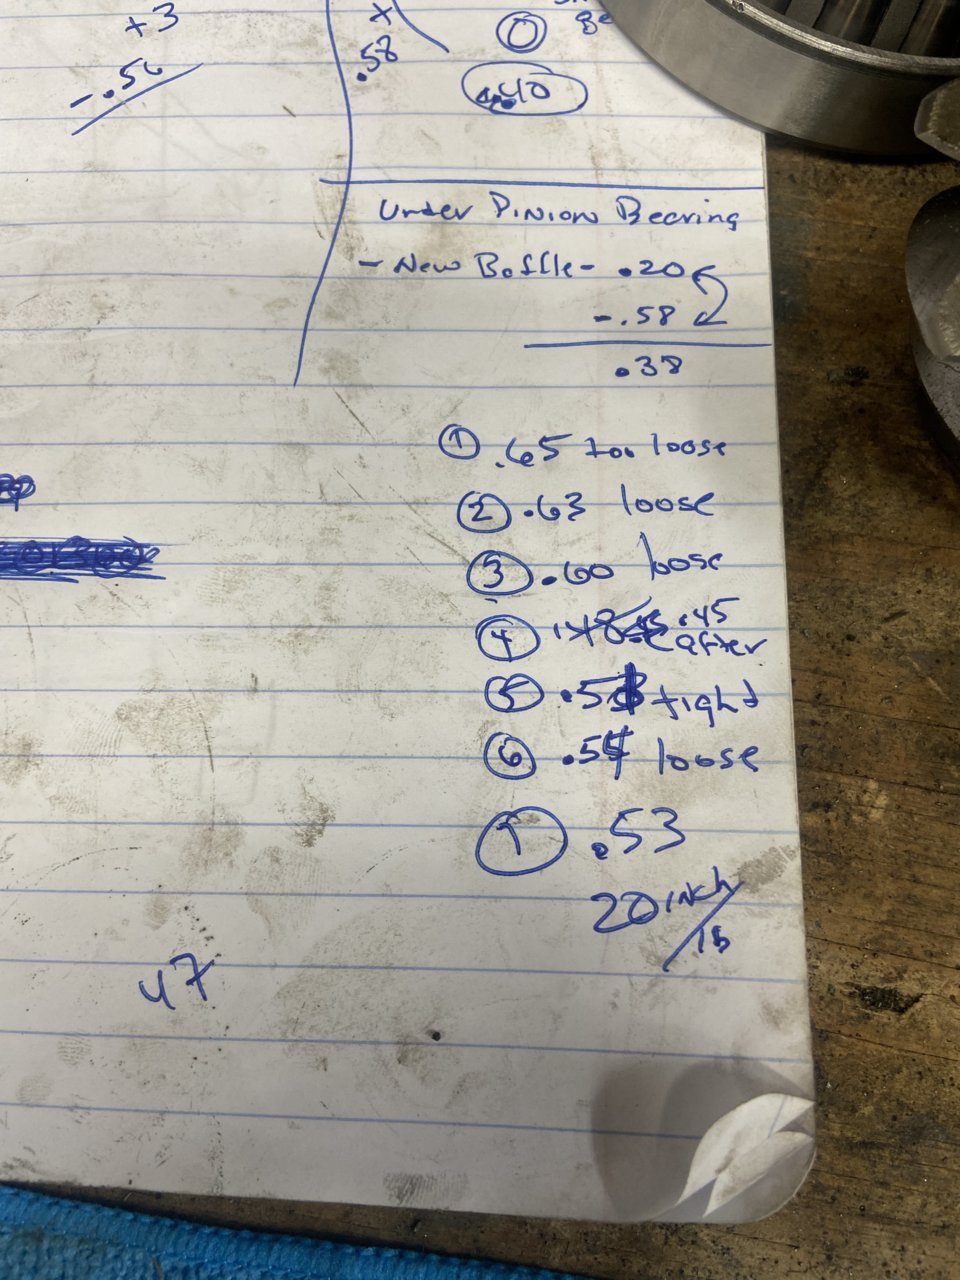 +3
-.56
x
.58
0
.40
Under Pinion Bearing
- New Baffle - .20
-.58
.38
① .65 too loose
② .63 loose
③ .60 loose
④ .45 after
⑤ tight
⑥ .54 loose
⑦ .53
20 inch/lb
47